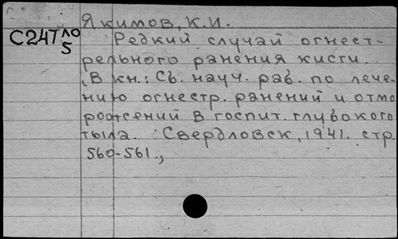 Якимов, К.И.
С247 10
5
Редкий случай огнест-
рельного ранения кисти.
(В кн.: Сб. науч. раб. по лече-
нию огнестр. ранений и отмо
рожений в госпит. глубокого
тыла. Свердловск, 1941. стр.
560-561.,